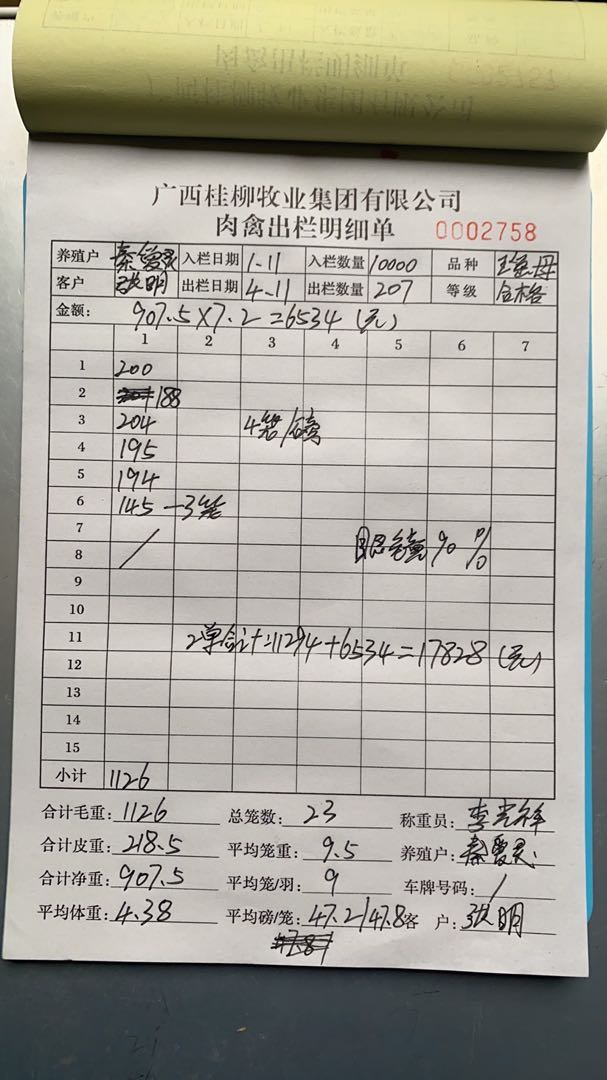 广西桂柳牧业集团有限公司
肉禽出栏明细单 0002758
养殖户 入栏日期 1-11 入栏数量 10000 品种
客户 张明 出栏日期 4-11 出栏数量 207 等级 合格
金额: 907.5×7.2=6534(元)
1 2 3 4 5 6 7
1 200
2 188
3 204 4笼/磅
4 195
5 194
6 145 —3笼
7 90%
8 /
9
10
11 2单合计=11294+6534=17828(元)
12
13
14
15
小计 1126
合计毛重: 1126 总笼数: 23 称重员:
合计皮重: 218.5 平均笼重: 9.5 养殖户:
合计净重: 907.5 平均笼/羽: 9 车牌号码: /
平均体重: 4.38 平均磅/笼: 47.2/47.8 客 户: 张明